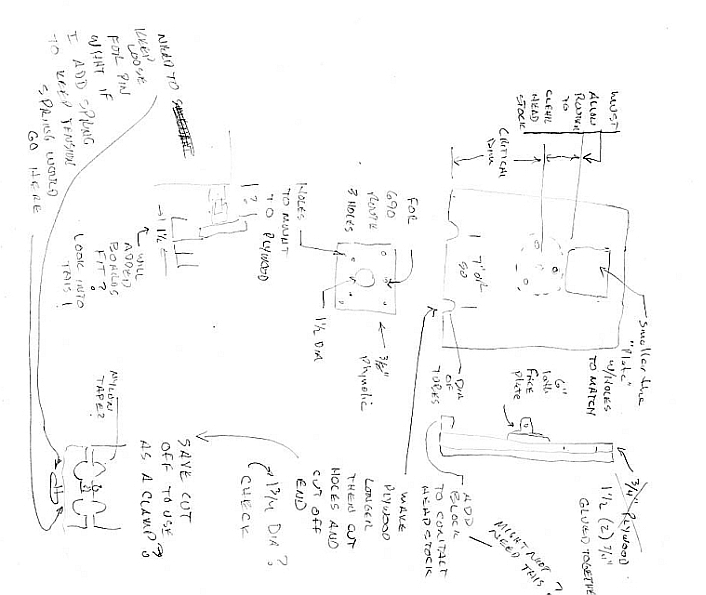 NEED TO
KEEP
LOOSE
FOR PIN
WHAT IF
I ADD SPRING
TO KEEP TENSION
SPRING WOULD
GO HERE
MUST
ALLOW
ROUTER
TO
CLEAR
HEAD
STOCK
CRITICAL
DIM
FOR
690
ROUTER
3 HOLES
HOLES
TO MOUNT
TO PLYWOOD
1 1/2 DIA
3/8"
Phynolic
1 1/2
?
WILL
ADDED
BOARDS
FIT?
LOOK INTO
THIS!
7" OR
SO
smaller than
"Plate"
W/HOLES
TO MATCH
6"
FACE
Plate
DIA
OF
TUBES
3/4" PLYWOOD
1 1/2 (2) 3/4"
GLUED TOGETHER
ADD
BLOCK
TO CONTACT
HEADSTOCK
MIGHT NOT
NEED THIS?
MAKE
PLYWOOD
LONGER
THEN CUT
HOLES AND
CUT OFF
END
1 3/4 DIA?
CHECK
SAVE CUT
OFF TO USE
AS A CLAMP?
NYLON
TAPE?